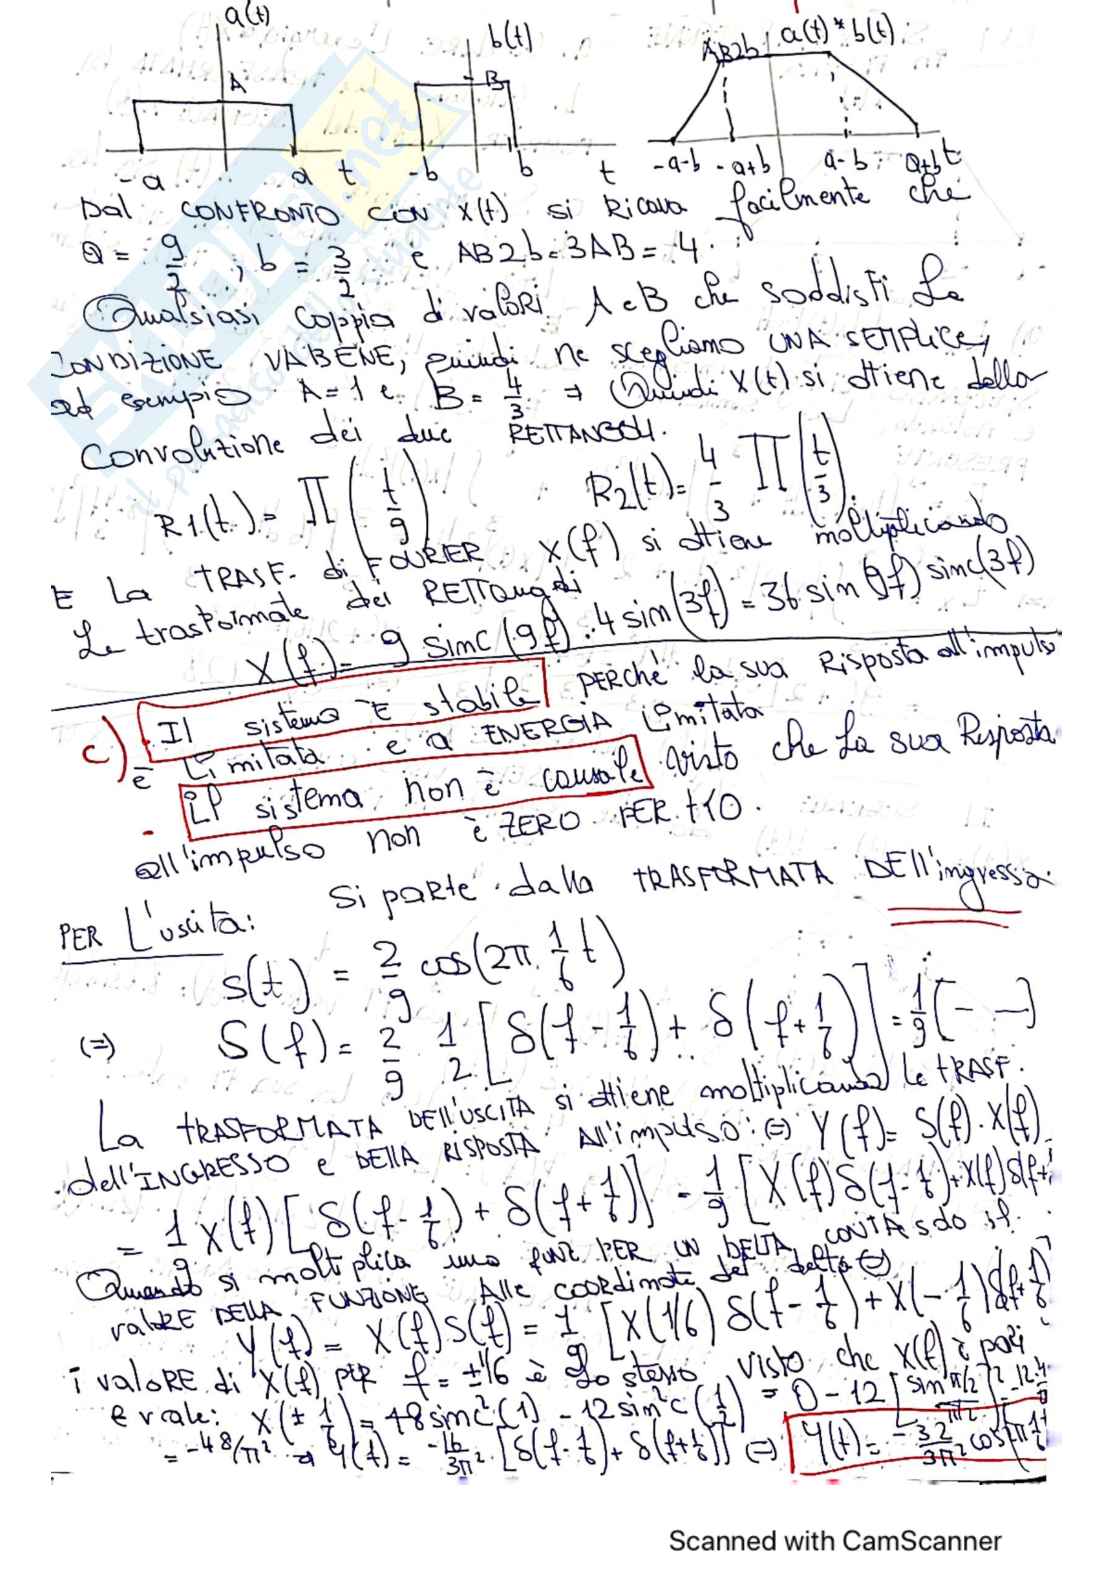 a(t) b(t) AB2b a(t) * b(t)
A B
-a a t -b b t -a-b -a+b a-b a+b t
Dal CONFRONTO CON X(t) si Ricava facilmente che
a = 9/2 ; b = 3/2 e AB2b = 3AB = 4.
Qualsiasi coppia di valori A e B che soddisfi la
CONDIZIONE VA BENE, quindi ne scegliamo UNA SEMPLICE,
ad esempio A=1 e B = 4/3 ⇒ Quindi X(t) si ottiene dalla
Convoluzione dei due RETTANGOLI.
R1(t) = Π(t/9) R2(t) = 4/3 Π(t/3).
E La TRASF. di FOURIER X(f) si ottiene moltiplicando
Le trasformate dei RETTangoli
X(f) = 9 sinc(9f) · 4 sin(3f) = 36 sin(9f) sinc(3f)
c) Il sistema È stabile PERChé la sua Risposta all'impulso
è Limitata e a ENERGIA Limitata
- il sistema non è causale visto che la sua Risposta
all'impulso non è ZERO PER t<0.
PER L'uscita: Si parte dalla TRASFORMATA DEll'ingresso.
s(t) = 2/9 cos(2π 1/6 t)
(=) S(f) = 2/9 1/2 [δ(f - 1/6) + δ(f + 1/6)] = 1/9 [- -]
La TRASFORMATA DELL'USCITA si ottiene moltiplicando le TRASF.
dell'INGRESSO e DELLA RISPOSTA All'impulso: (=) Y(f) = S(f) · X(f)
= 1/9 X(f) [δ(f - 1/6) + δ(f + 1/6)] = 1/9 [X(f) δ(f - 1/6) + X(f) δ(f +
Quando si moltiplica una funz PER UN DELTA, CONTA SOLO il
valORE DELLA FUNZIONE Alle coordinate del delta (=)
Y(f) = X(f) S(f) = 1/9 [X(1/6) δ(f - 1/6) + X(- 1/6) δ(f + 1/6
i valORE di X(f) per f = ±1/6 è lo stesso visto che X(f) è pari
e vale: X(± 1/6) = 48 sinc²(1) - 12 sin²c(1/2) = 0 - 12 [sin π/2 / π/2]² = -12 · 4
= -48/π² ⇒ Y(f) = -16/3π² [δ(f - 1/6) + δ(f + 1/6)] (=) Y(t) = - 32/3π² cos(2π 1/6
Scanned with CamScanner